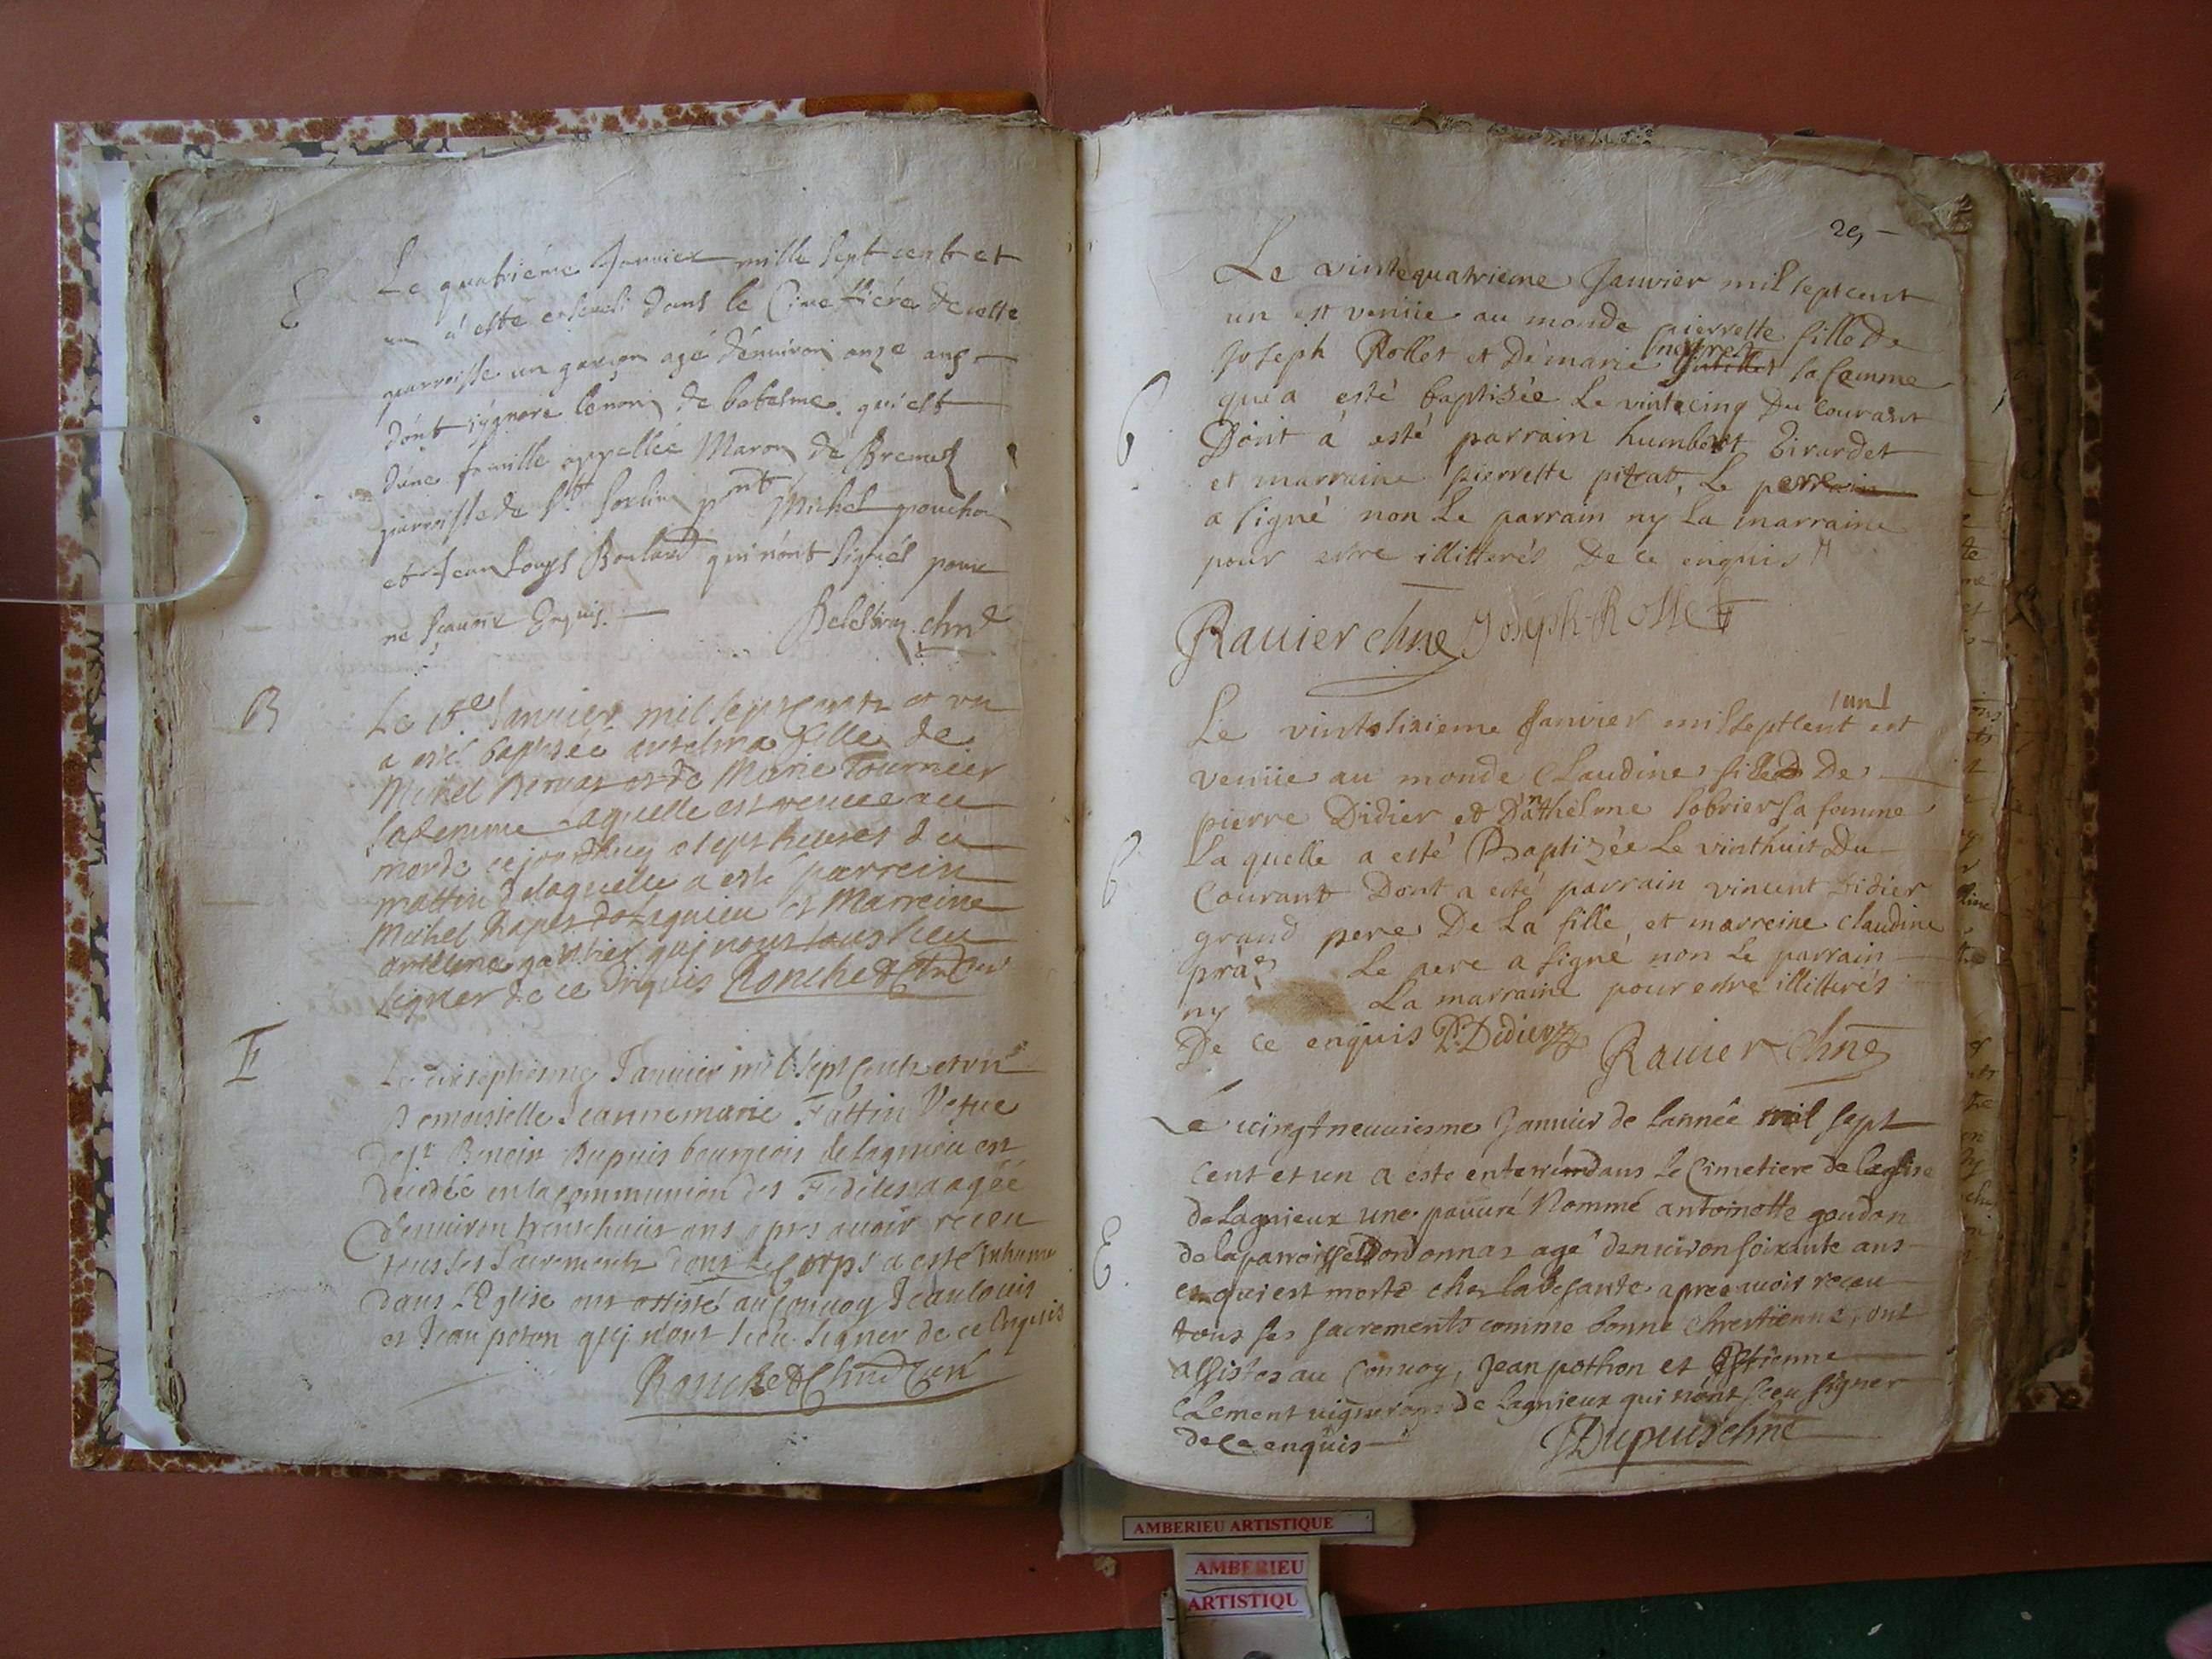 E
Le quatriéme Janvier mille sept cent et
un a esté enseveli dans le Cimettiére de cette
parroisse un garçon agé d'environ onze ans
dont j'ygnore le nom de batesme qui est
d'une famille appellée Maron de
parroisse de St Sorlin pnt Michel pouchon
et Jean Louys Roland qui n'ont signés pour
ne scauoir Enquis.
B
Le 16e Janvier mil sept cents et un
a esté baptisée anthelma fille de
Michel et de Marie Tournier
sa femme laquelle est venue au
monde ce jourdhuy a sept heures du
mattin de laquelle a esté parrein
Michel de Lagnieu et Marreine
anthelma qui nont sceu
signer de ce Enquis Ronchet
E
Le dixseptiesme Janvier mil sept cents et un
Demoiselle Jeanne marie Fattin Vefue
de sr Benoist Dupuis bourgeois de Lagnieu est
decedée en la communion des Fideles aagée
denuiron trente huit ans apres auoir receu
tous les sacrements dont Le Corps a esté Inhumé
dans L'Eglise ont assisté au conuoy Jean louis
et Jean poton qui n'ont sceu signer de ce Enquis
Ronchet
29
Le vintequatrieme Janvier mil sept cent
un est venüe au monde pierrette fille De
Joseph Rollet et De marie sa femme
B
qui a esté baptisée Le vintecinq Du courant
Dont a esté parrain humbert Girardet
et marraine pierrette pitrat, Le perre
a signé non Le parrain ny La marraine
pour estre illitterés De ce enquis
Rauier chne Joseph Rollet
Le vintesixieme Janvier mil sept cent un est
venüe au monde Claudine fille De
pierre Didier et D'anthelme Sobrier sa femme
B
La quelle a esté Baptizée Le vinthuit Du
Courant Dont a esté parrain vincent Didier
grand pere De La fille et marreine Claudine
Le pere a signé non Le parrain
ny La marraine pour estre illitterés
De ce enquis P. Didier Rauier chne
Le uingt neuuiesme Januier de Lannée mil sept
cent et un a este enterré dans Le Cimetiere de Leglise
de Lagnieux une pauure Nommé antoinette goudon
E
de la parroisse Dordonnas agé denuiron soixante ans
et qui est morte ches apres auoir receu
tous ses sacrements comme bonne chrestienne, ont
assistes au Conuoy, Jean pothon et Estienne
Clement uignerons de Lagnieux qui n'ont sceu signer
de Ce enquis Dupuis chne
AMBERIEU ARTISTIQUE
AMBERIEU
ARTISTIQU